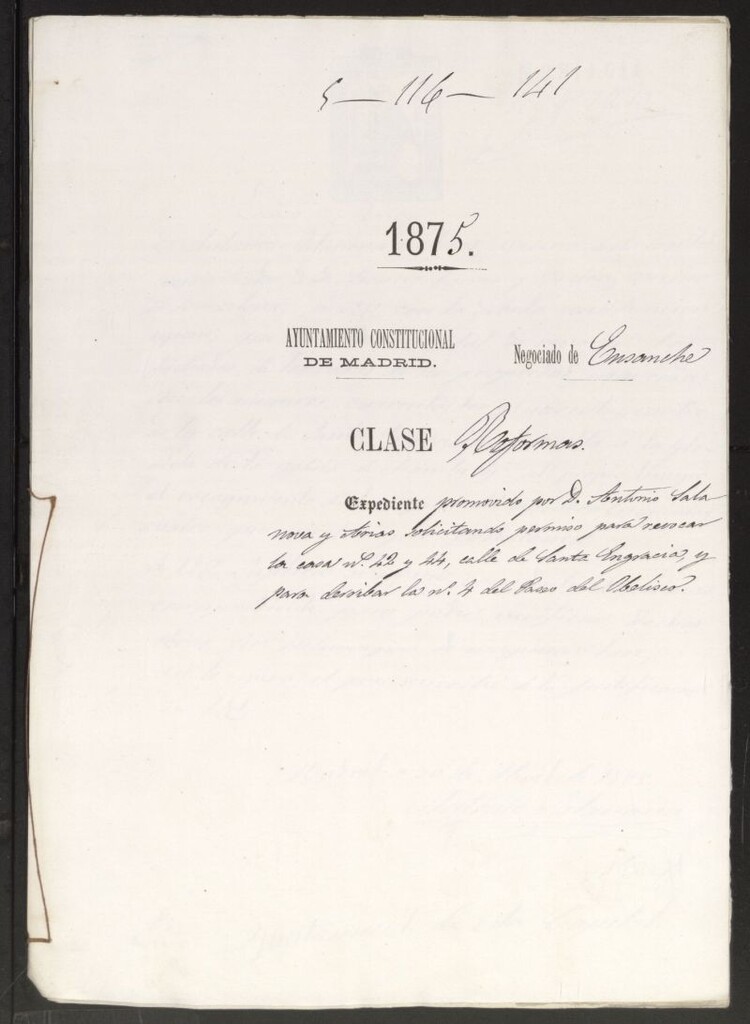 5 — 116 — 141
1875.
AYUNTAMIENTO CONSTITUCIONAL
DE MADRID.
Negociado de Ensanche
CLASE Reformas.
Expediente promovido por D. Antonio Cala
nova y Arias solicitando permiso para revocar
la casa nº. 42 y 44, calle de Santa Engracia, y
para derribar la nº. 4 del Paseo del Obelisco.